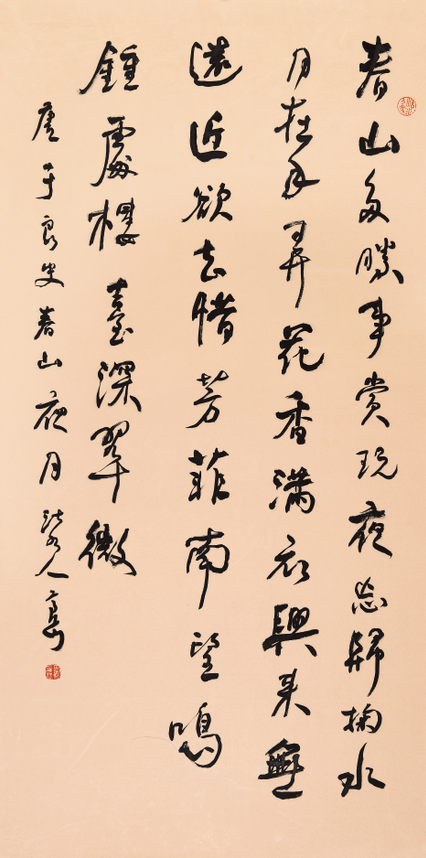 春山多勝事賞玩夜忘歸掬水
月在手弄花香滿衣興來無
遠近欲去惜芳菲南望鳴
鍾處樓臺深翠微
唐于良史春山夜月